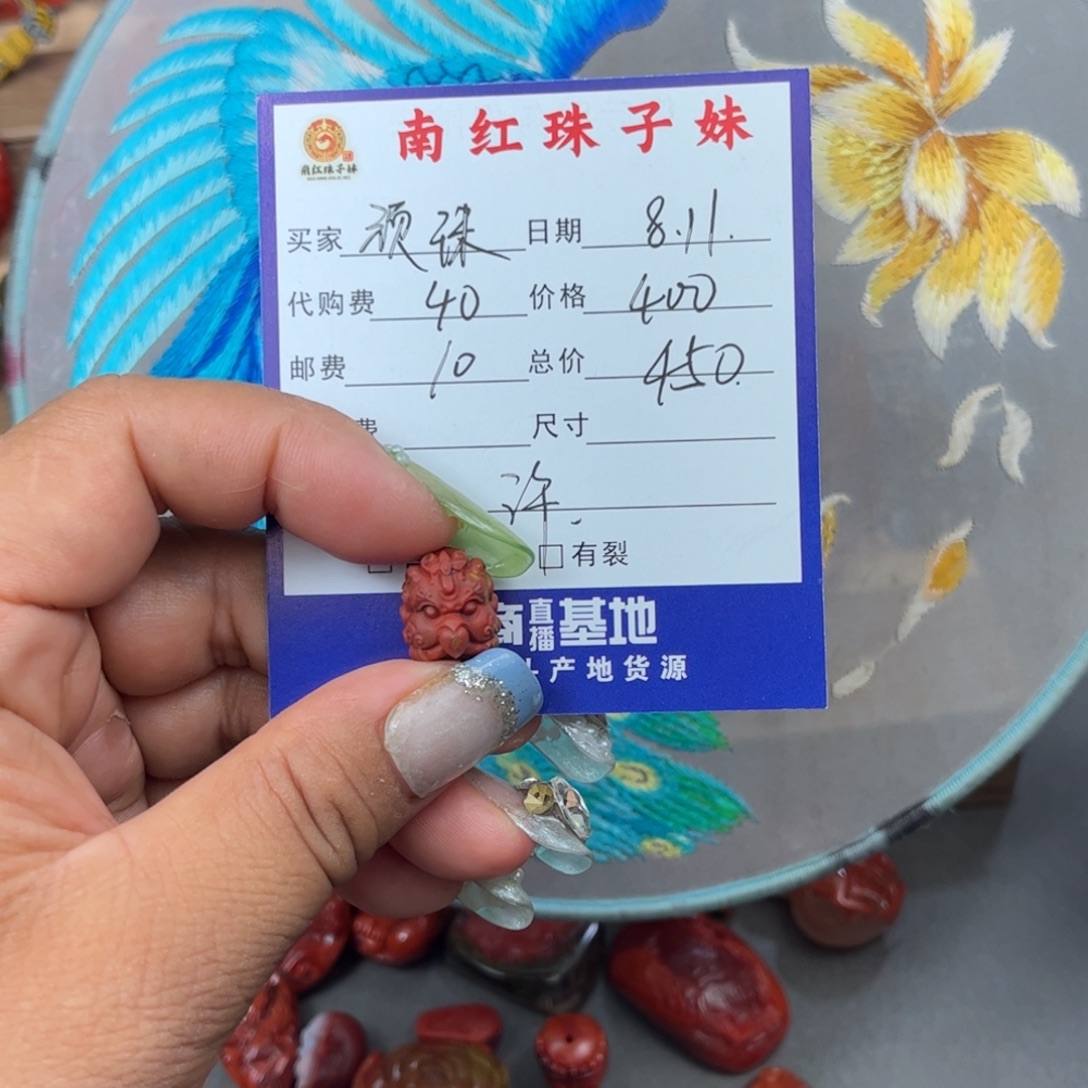 南红珠子妹
南红珠子妹
买家 颀珠 日期 8.11.
代购费 40 价格 400
邮费 10 总价 450.
费 尺寸
许.
有裂
商直播基地
产地货源